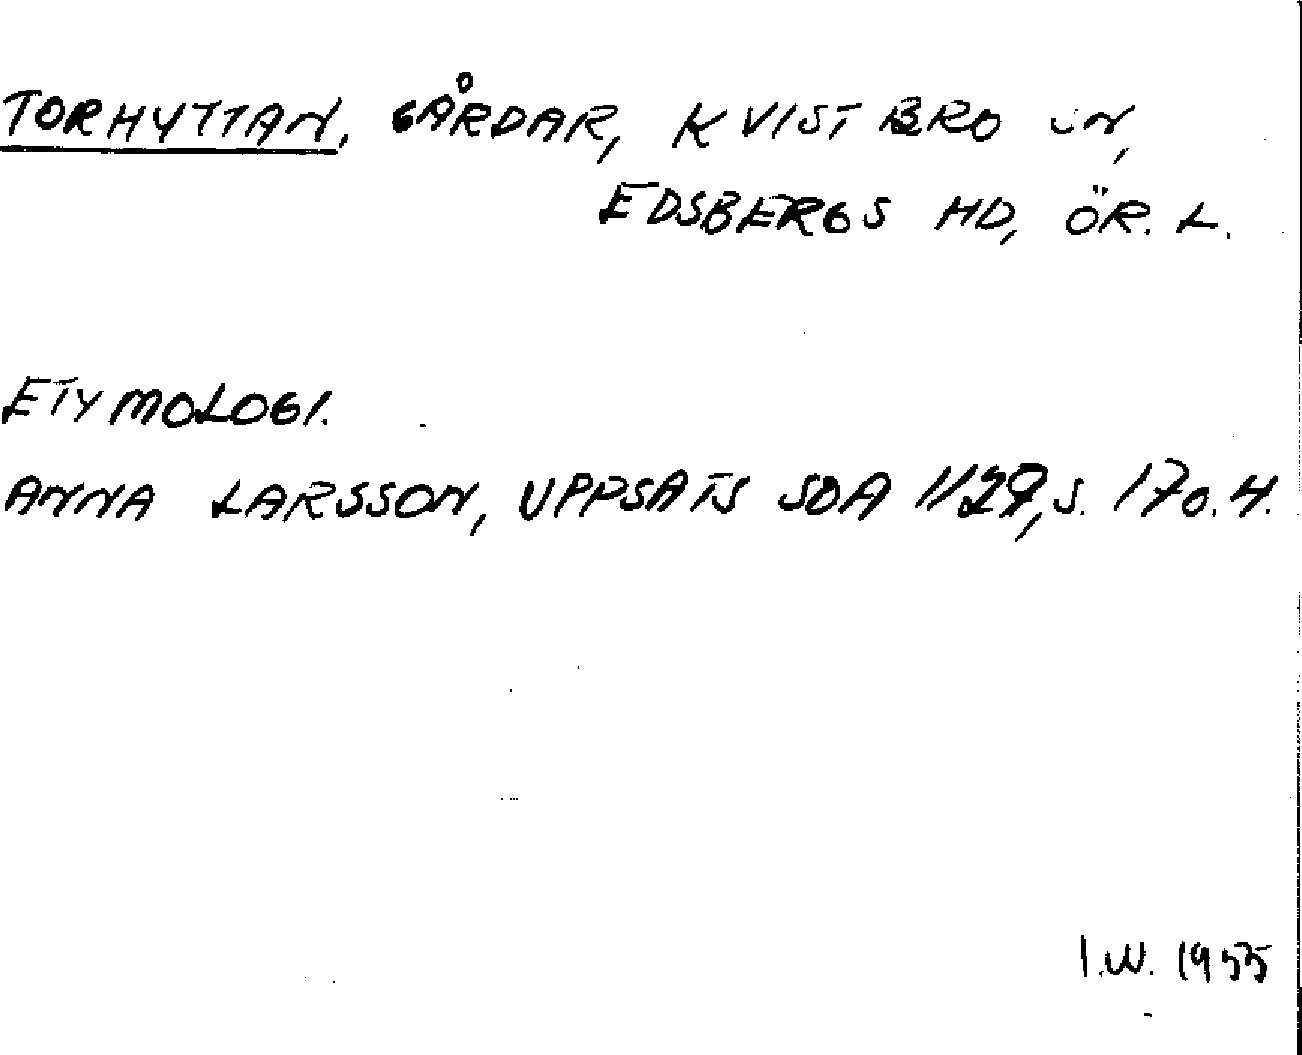 TORHYTTAN, GÅRDAR, KVISTBRO SN,
EDSBERGS HD, ÖR. L.
ETYMOLOGI.
ANNA LARSSON, UPPSATS SOA 1129, S. 170.4.
I.W. 1955